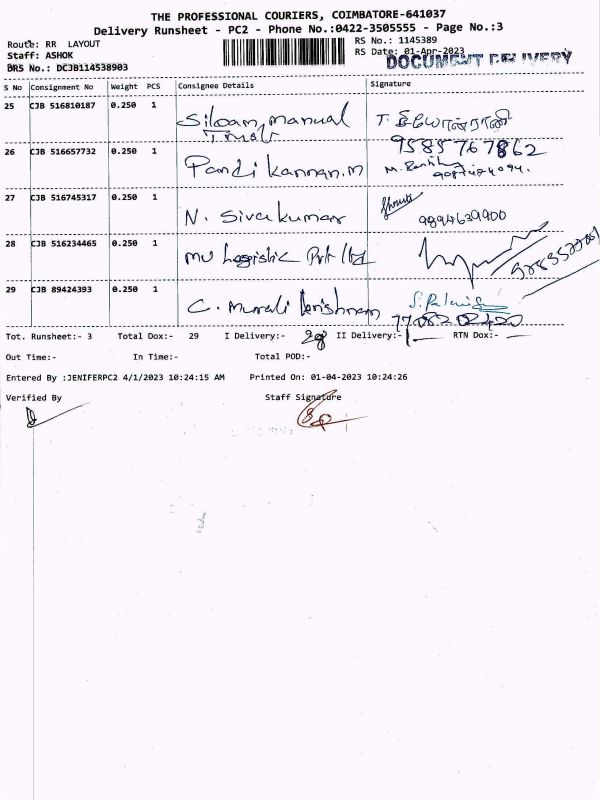 THE PROFESSIONAL COURIERS, COIMBATORE-641037
Delivery Runsheet - PC2 - Phone No.:0422-3505555 - Page No.:3
Route: RR LAYOUT
RS No.: 1145389
Staff: ASHOK
RS Date: 01-Apr-2023
DOCUMENT DELIVERY
DRS No.: DCJB114538903
S No Consignment No Weight PCS Consignee Details Signature
25 CJB 516810187 0.250 1 Siloam manual
26 CJB 516657732 0.250 1 Pandi kannan.m
9585767862
27 CJB 516745317 0.250 1 N. Sivakumar 9894639900
28 CJB 516234465 0.250 1 MU Logistic Pvt ltd
29 CJB 89424393 0.250 1 C. Murali krishnan
Tot. Runsheet:- 3 Total Dox:- 29 I Delivery:- 28 II Delivery:- 1 RTN Dox:-
Out Time:- In Time:- Total POD:-
Entered By :JENIFERPC2 4/1/2023 10:24:15 AM Printed On: 01-04-2023 10:24:26
Verified By Staff Signature